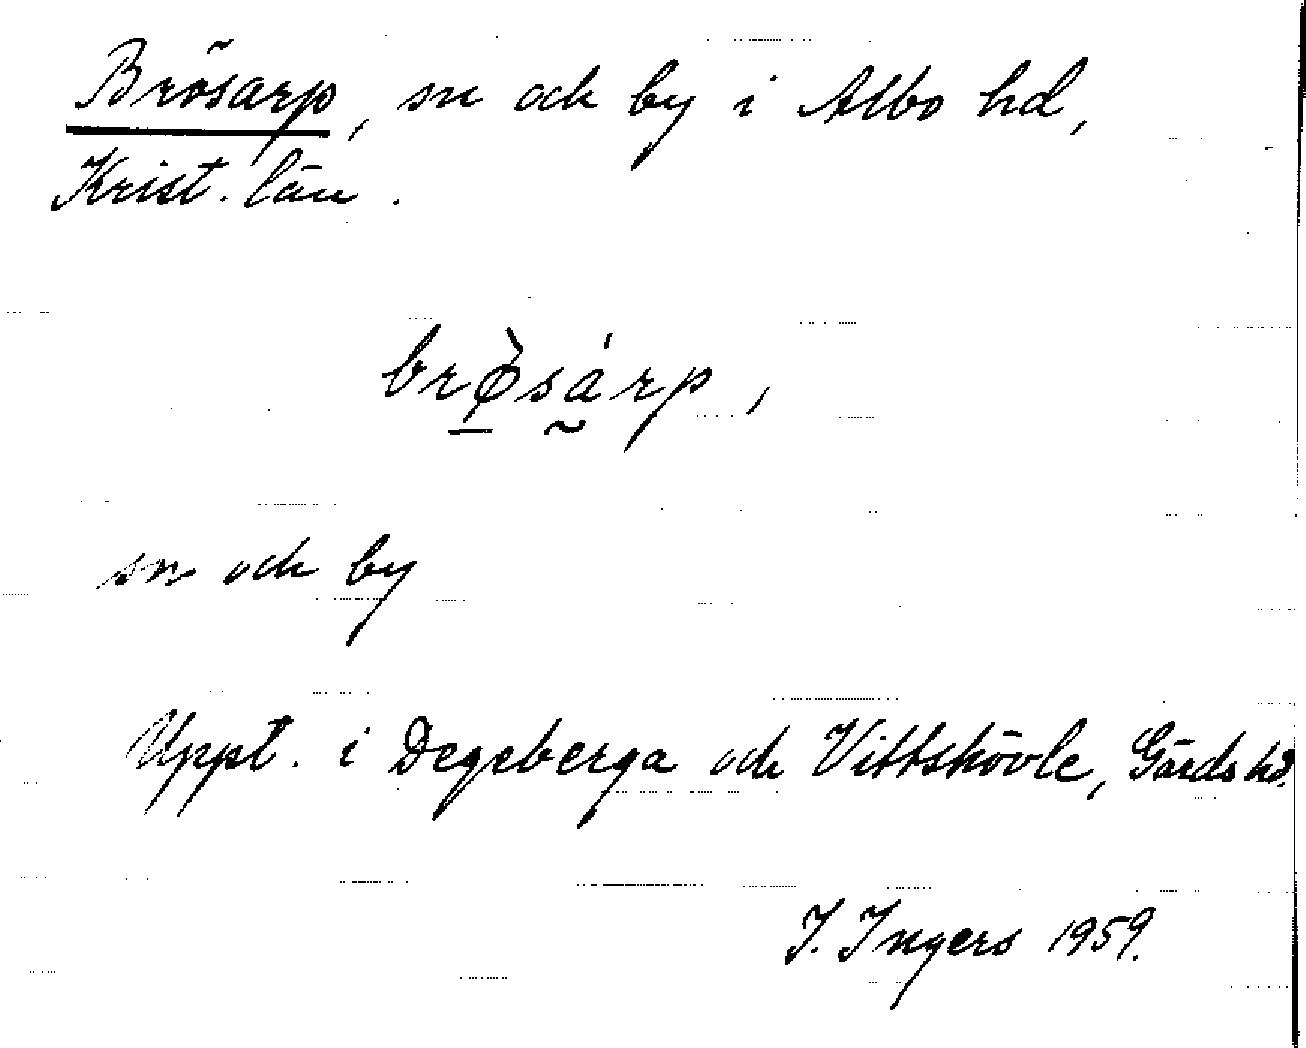 Brösarp, sn och by i Albo hd,
Krist. län.
brø̱̀sá̰rp,
sn och by
Uppt. i Degeberga och Vittskövle, Gärds hd.
I. Ingers 1959.